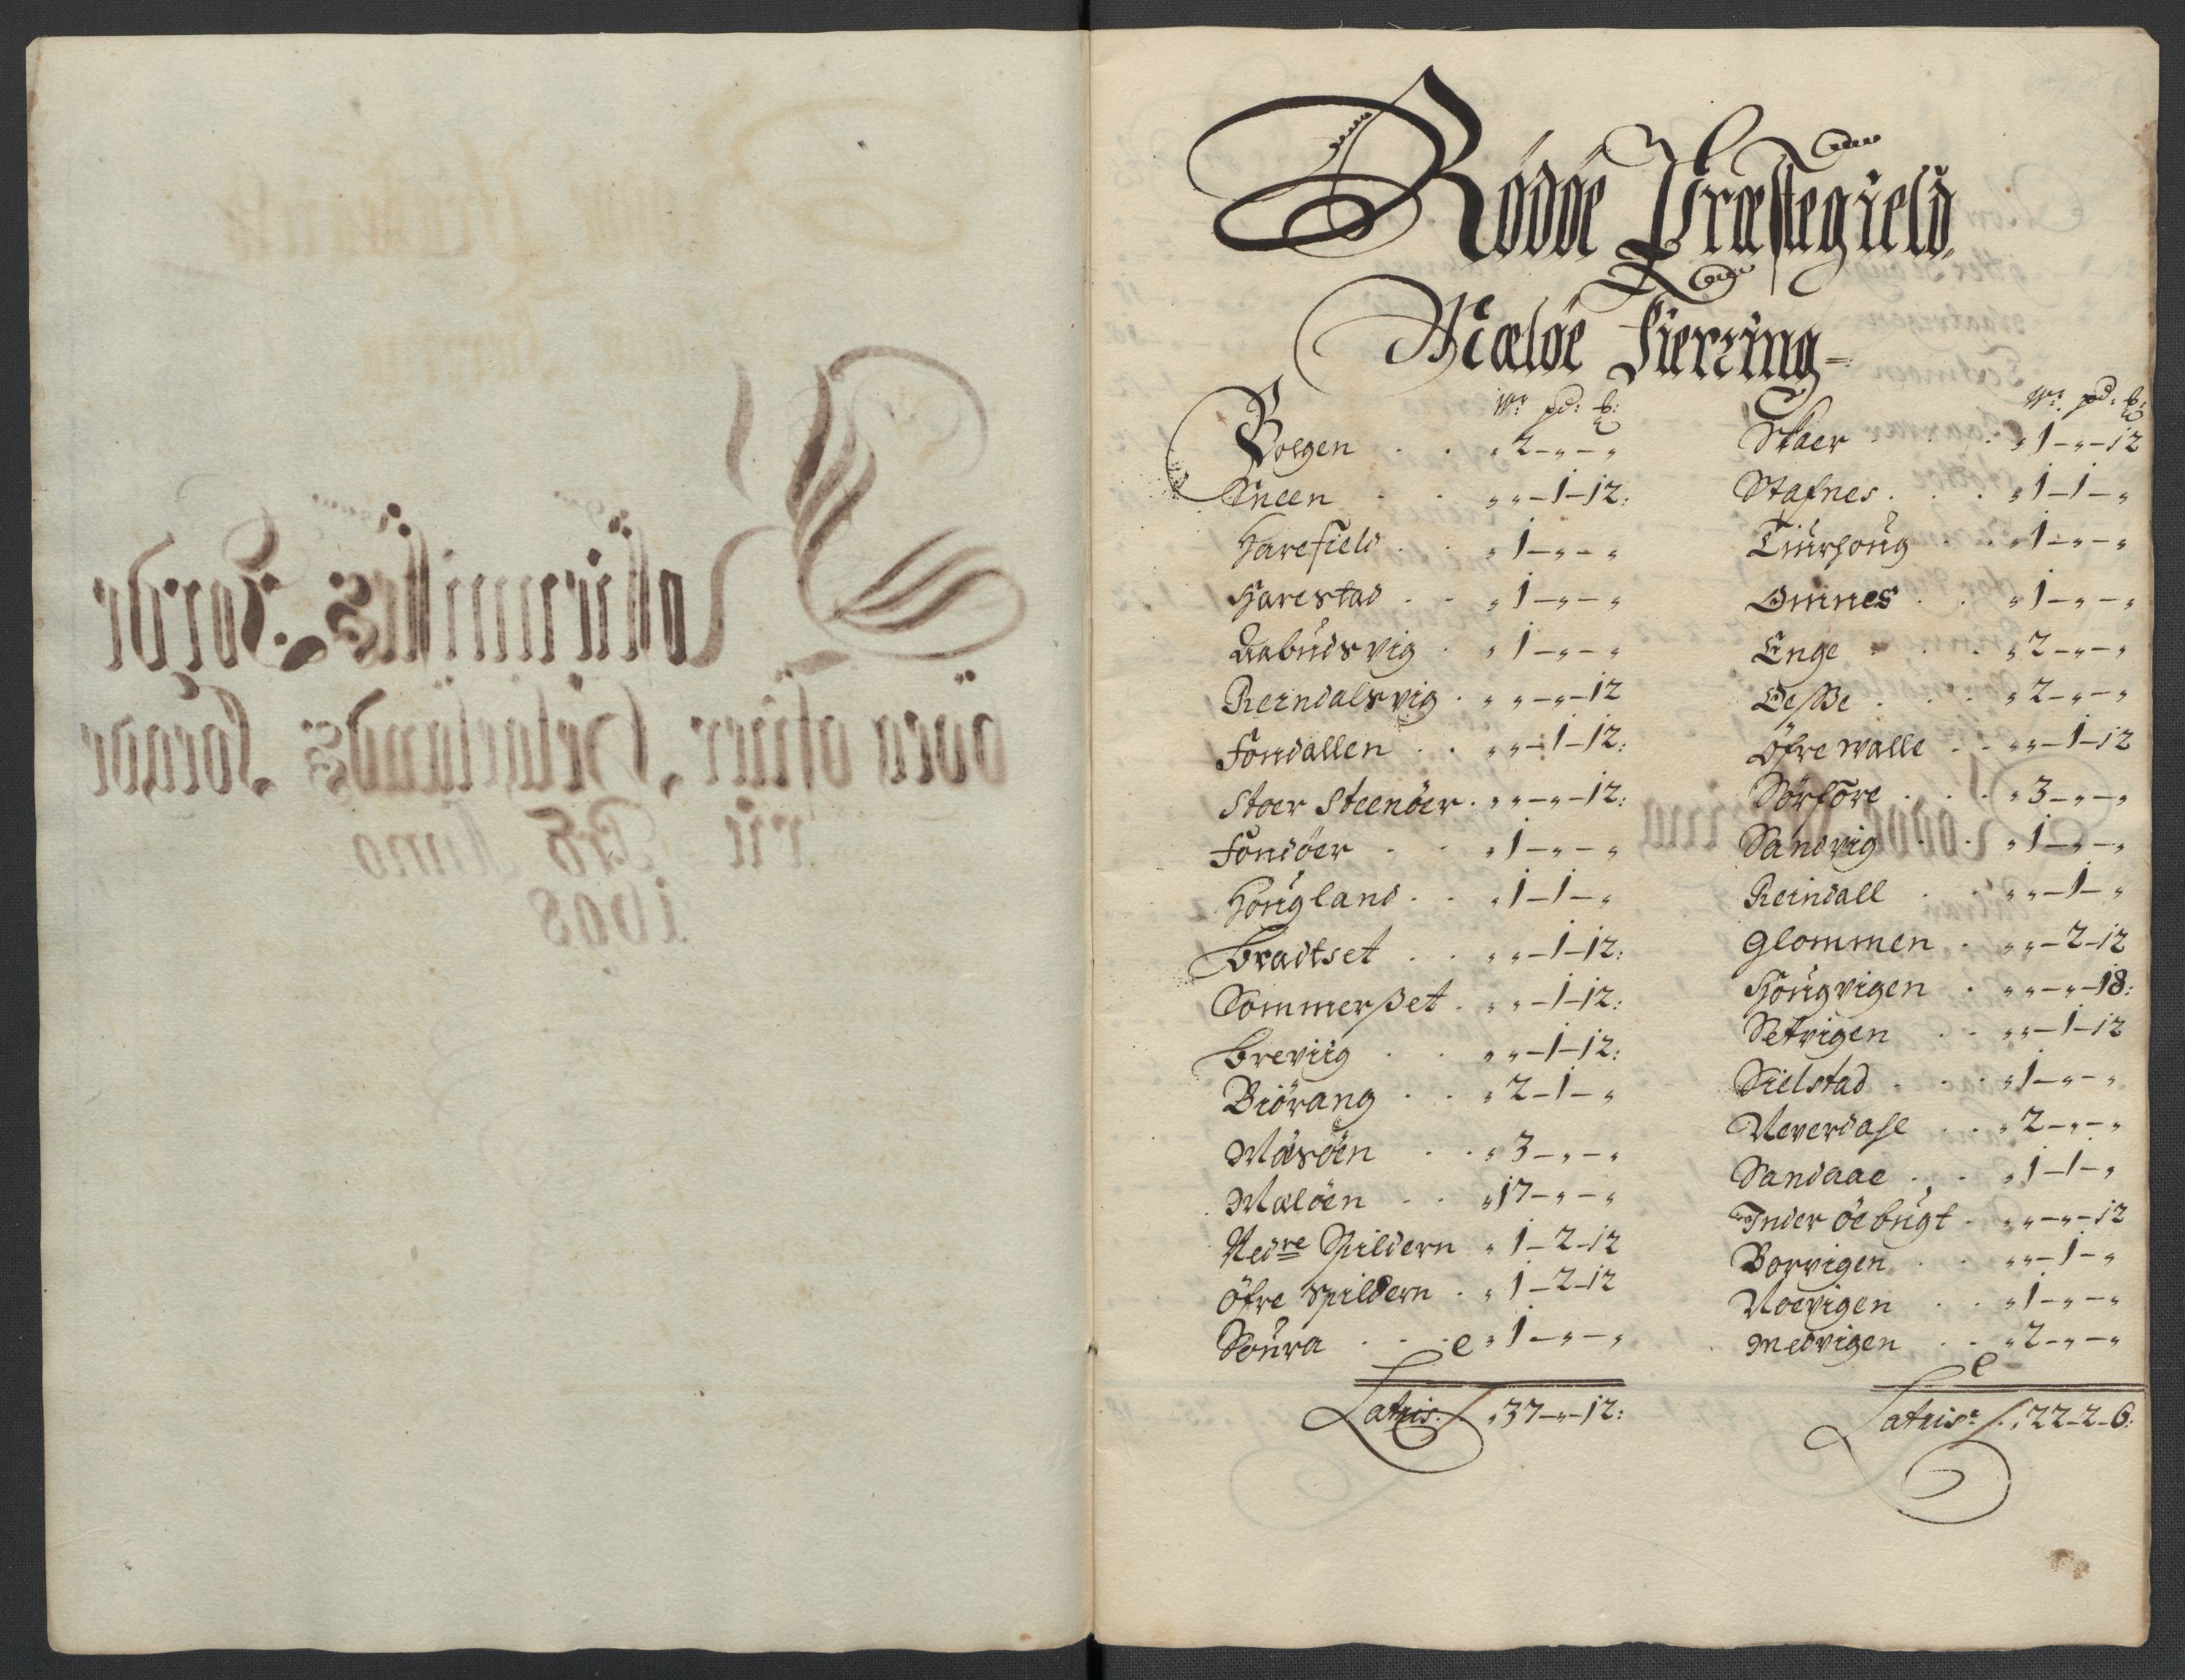 Rödöe Præstegield
Mæløe Fierring
W: pd: ℔:
Bolgen . . „ 2 – „ – „
Sneen . . „ „ – 1 – 12:
Harefield . . „ 1 – „ – „
Harestad . . „ 1 – „ – „
Aabudsvig . „ 1 – „ – „
Reindalsvig . „ „ – „ – 12
Fondallen . . „ „ – 1 – 12:
Stoer Steenöer . „ „ – „ – 12:
Fondöer . . „ 1 – „ – „
Hougland . . „ 1 – 1 – „
Bradtset . . „ „ – 1 – 12:
Sommerßet . „ „ – 1 – 12:
Breviig . . „ „ – 1 – 12:
Biörang . . „ 2 – 1 – „
Mæsöen . . „ 3 – „ – „
Mælöen . . „ 17 – „ – „
Nedre Spildern „ 1 – 2 – 12
Öfre Spildern . „ 1 – 2 – 12
Soura . . . „ 1 – „ – „
Latris . „ 37 – „ – 12:
W: pd: ℔:
Skaer . . . „ 1 – „ – 12
Stafnes . . . „ 1 – 1 – „
Tiurhoug . . „ 1 – „ – „
Omnes . . „ 1 – „ – „
Enge . . . „ 2 – „ – „
Öfre walle . . „ „ – 1 – 12
Sörföre . . . „ 3 – „ – „
Sandvig . . „ 1 – „ – „
Reindall . . „ „ – 1 – „
Glommen . „ „ – 2 – 12
Hougvigen . „ „ – „ – 18:
Setvigen . . „ „ – 1 – 12
Sielstad . . . „ 1 – „ – „
Neverdahl . . „ 2 – „ – „
Sandaae . . „ 1 – 1 – „
Inder öe bugt . „ „ – „ – 12
Borvigen . . „ „ – 1 – „
Noevigen . . „ 1 – „ – „
Medvigen . . „ 2 – „ – „
Latris: . „ 22 – 2 – 6: